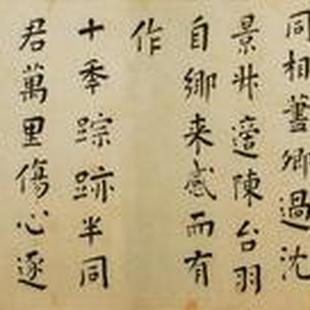 同相卿過沈
景適陳台羽
自鄉来感而有
作
十秊踪跡半同
君萬里傷心逐